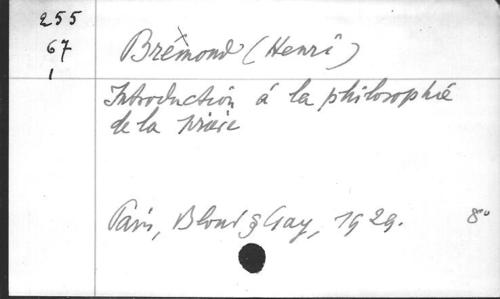 255
67
1
Brémond (Henri)
Introduction á la philosophie
de la prière
Paris, Bloud & Gay, 1929. 8°